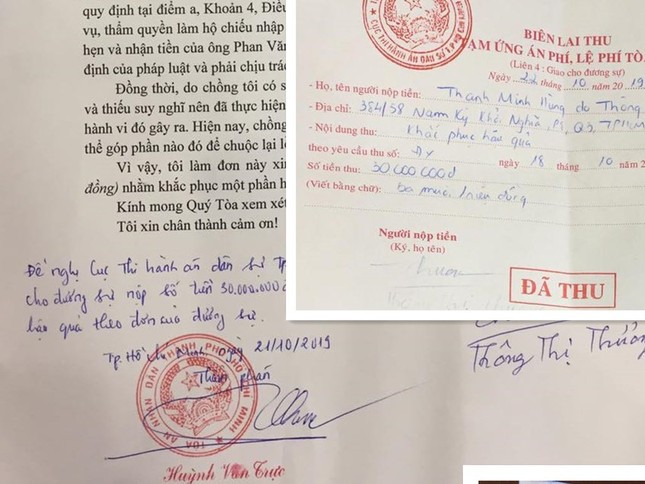 quy định tại điểm a, Khoản 4, Điều
vụ, thẩm quyền làm hộ chiếu nhập
hẹn và nhận tiền của ông Phan Văn
định của pháp luật và phải chịu trác
Đồng thời, do chồng tôi có s
và thiếu suy nghĩ nên đã thực hiện
hành vi đó gây ra. Hiện nay, chồng
thể góp phần nào đó để chuộc lại l
Vì vậy, tôi làm đơn này xin
đồng) nhằm khắc phục một phần h
Kính mong Quý Tòa xem xét
Tôi xin chân thành cảm ơn!
Đề nghị Cục Thi hành án dân sự Tp
cho đương sự nộp số tiền 30.000.000
hậu quả theo đơn của đương sự.
Tp. Hồ Chí Minh, ngày 21/10/2019
Thẩm phán
TOÀ ÁN NHÂN DÂN THÀNH PHỐ HỒ CHÍ MINH
Huỳnh Văn Trực
CỤC THI HÀNH ÁN DÂN SỰ
BIÊN LAI THU
ẠM ỨNG ÁN PHÍ, LỆ PHÍ TÒ
(Liên 4: Giao cho đương sự)
Ngày 22 tháng 10 năm 2019
- Họ, tên người nộp tiền: Thanh Minh Hùng do Thông
- Địa chỉ: 384/58 Nam Kỳ Khởi Nghĩa, P8, Q3, TPHCM
- Nội dung thu: Khắc phục hậu quả
theo yêu cầu thu số: ngày 18 tháng 10 năm 2
Số tiền thu: 30.000.000đ
(Viết bằng chữ): ba mươi triệu đồng
Người nộp tiền
(Ký, họ tên)
ĐÃ THU
Thông Thị Thươn